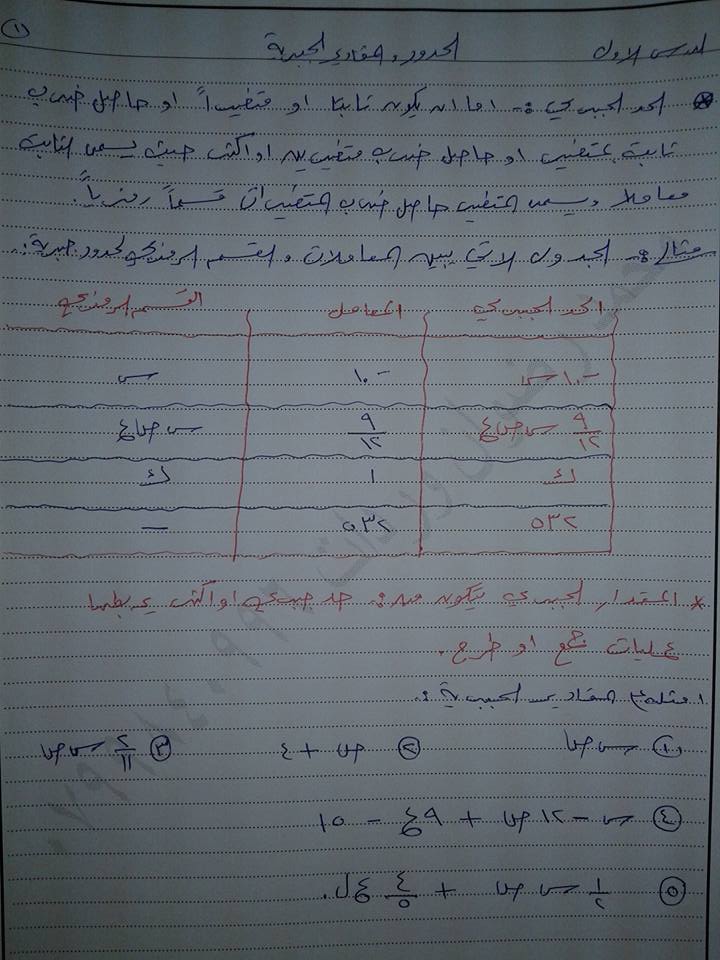 ١
الدرس الاول الحدود والمقادير الجبرية
* الحد الجبري :- اما ان يكون ثابتا او متغيراً او حاصل ضرب
ثابت بمتغير او حاصل ضرب متغيرين او اكثر حيث يسمى الثابت
معاملا ويسمى المتغير حاصل ضرب المتغيرات قسماً رمزياً.
مثال :- الجدول الاتي يبين المعاملات والقسم الرمزي لحدود جبرية:
الحد الجبري المعامل القسم الرمزي
-١٠ س -١٠ س
٩/١٢ س ص ع ٩/١٢ س ص ع
ك ١ ك
٥٣٢ ٥٣٢ —
* المقدار الجبري يتكون من: حد جبري او اكثر يربطها
عمليات جمع او طرح.
امثلة المقادير الجبرية :
① س ص ② ص + ٤ ③ ٢/١١ س ص
④ س - ١٢ ص + ٩ ع - ١٥
⑤ ١/٢ س ص + ٤/٥ ع ل.